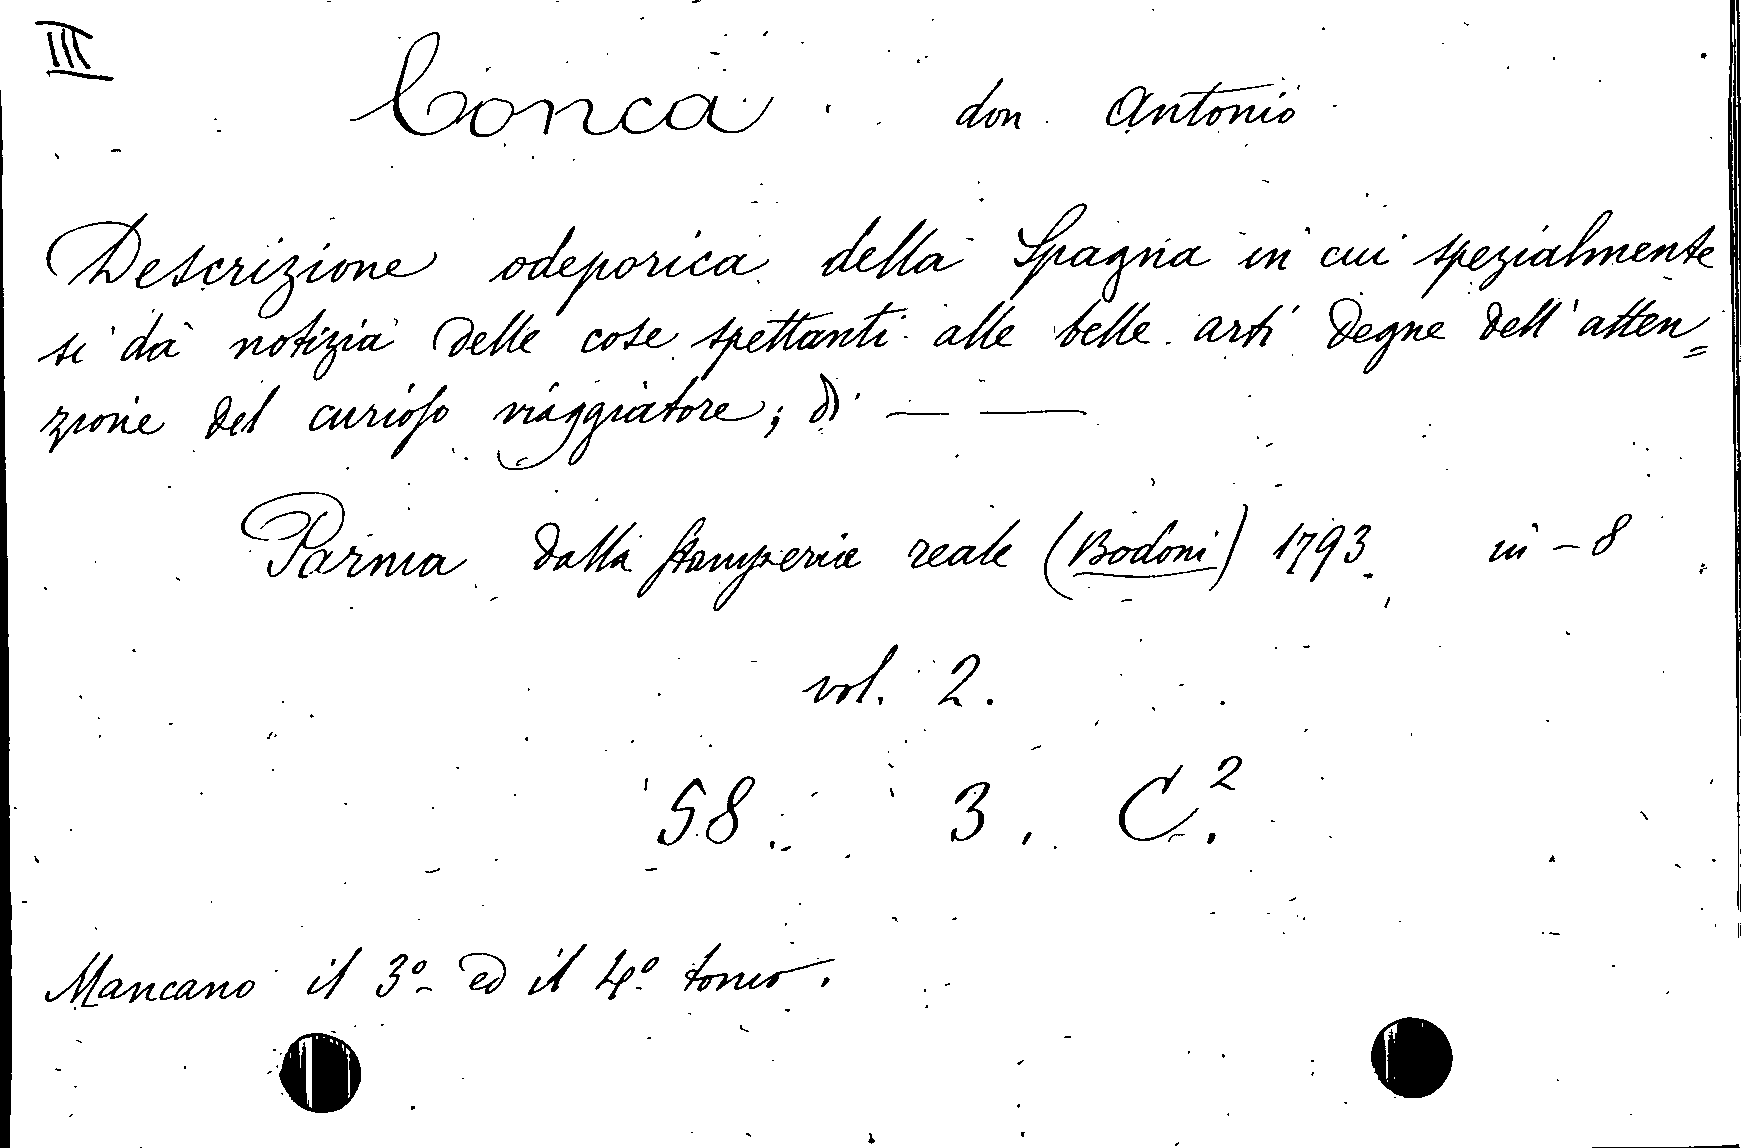 III
Conca don Antonio
Descrizione odeporica della Spagna in cui spezialmente
si dà notizia delle cose spettanti alle belle arti degne dell'atten=
zione del curioso viaggiatore; di — —
Parma dalla stamperia reale (Bodoni) 1793 in-8
vol. 2.
58. 3. C.²
Mancano il 3º ed il 4º tomo.